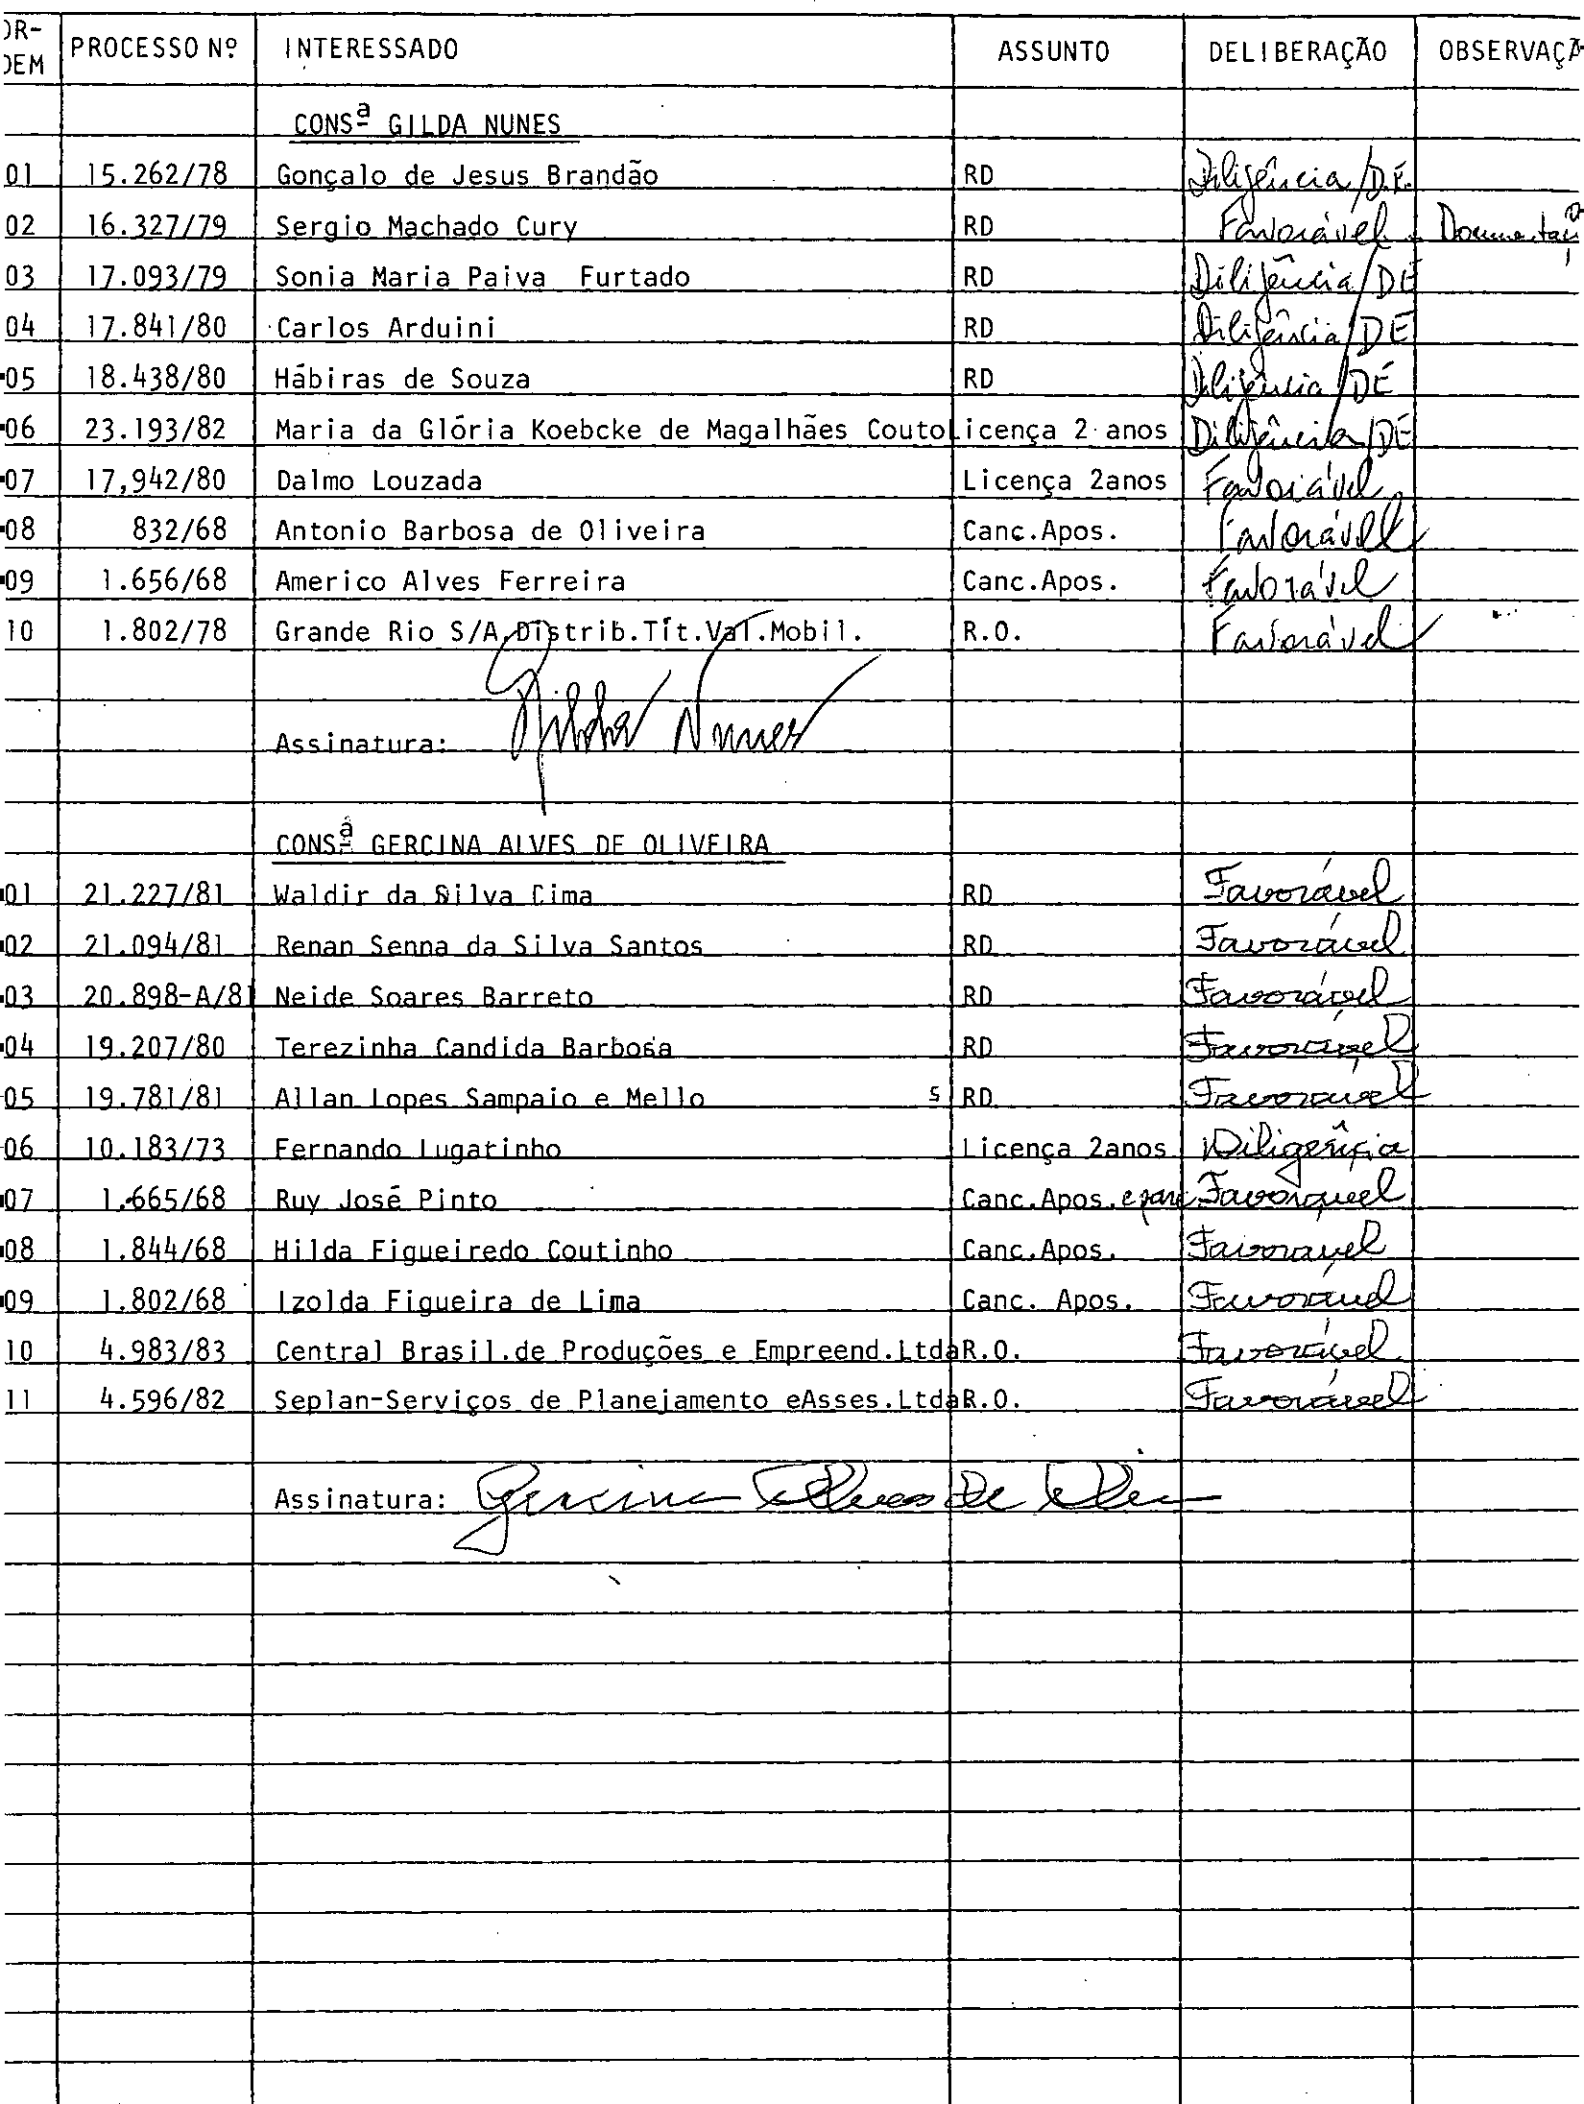 OR-
DEM PROCESSO Nº INTERESSADO ASSUNTO DELIBERAÇÃO OBSERVAÇÃ
CONSª GILDA NUNES
01 15.262/78 Gonçalo de Jesus Brandão RD Diligência/D.E.
02 16.327/79 Sergio Machado Cury RD Favorável
03 17.093/79 Sonia Maria Paiva Furtado RD Diligência/DE
04 17.841/80 Carlos Arduini RD Diligência/DE
05 18.438/80 Hábiras de Souza RD Diligência/DE
06 23.193/82 Maria da Glória Koebcke de Magalhães Couto Licença 2 anos Diligência/DE
07 17,942/80 Dalmo Louzada Licença 2anos Favorável
08 832/68 Antonio Barbosa de Oliveira Canc.Apos. Favorável
09 1.656/68 Americo Alves Ferreira Canc.Apos. Favorável
10 1.802/78 Grande Rio S/A,Distrib.Tít.Val.Mobil. R.O. Favorável
Assinatura: Gilda Nunes
CONSª GERCINA ALVES DE OLIVEIRA
01 21.227/81 Waldir da Silva Cima RD Favorável
02 21.094/81 Renan Senna da Silva Santos RD Favorável
03 20.898-A/81 Neide Soares Barreto RD Favorável
04 19.207/80 Terezinha Candida Barbosa RD Favorável
05 19.781/81 Allan Lopes Sampaio e Mello s RD Favorável
06 10.183/73 Fernando Lugatinho Licença 2anos Diligência
07 1.665/68 Ruy José Pinto Canc.Apos. Favorável
08 1.844/68 Hilda Figueiredo Coutinho Canc.Apos. Favorável
09 1.802/68 Izolda Figueira de Lima Canc. Apos. Favorável
10 4.983/83 Central Brasil.de Produções e Empreend.Ltda R.O. Favorável
11 4.596/82 Seplan-Serviços de Planejamento eAsses.Ltda R.O. Favorável
Assinatura: Gercina Alves de